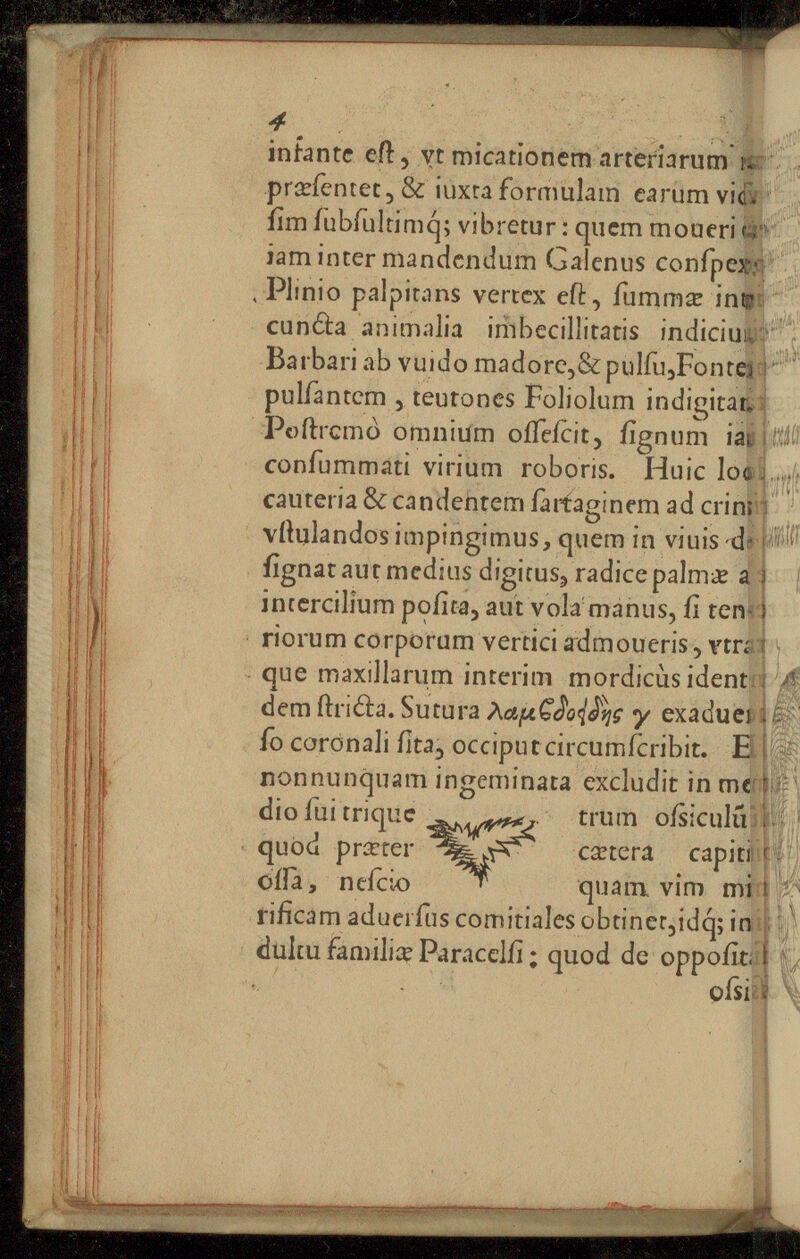 4
infante eſt, vt micationem arteriarum
præſentet, & iuxta formulam earum
ſim ſubſultimq́; vibretur: quem moueri
iam inter mandendum Galenus
Plinio palpitans vertex eſt, ſummæ
cuncta animalia imbecillitatis
Barbari ab vuido madore, & pulſu,
pulſantem, teutones Foliolum
Poſtremò omnium oſſeſcit, ſignum
conſummati virium roboris. Huic
cauteria & candentem ſartaginem ad
vſtulandos impingimus, quem in viuis
ſignat aut medius digitus, radice palmæ
intercilium poſita, aut vola manus, ſi
riorum corporum vertici admoueris,
que maxillarum interim mordicùs
dem ſtricta. Sutura λαμβδοιδὴς
ſo coronali ſita, occiput circumſcribit.
nonnunquam ingeminata excludit in
dio ſui trique trum oſsiculũ
quod præter cætera
oſſa, neſcio quam vim
rificam aduerſus comitiales obtinet, idq́;
dultu familiæ Paracelſi; quod de